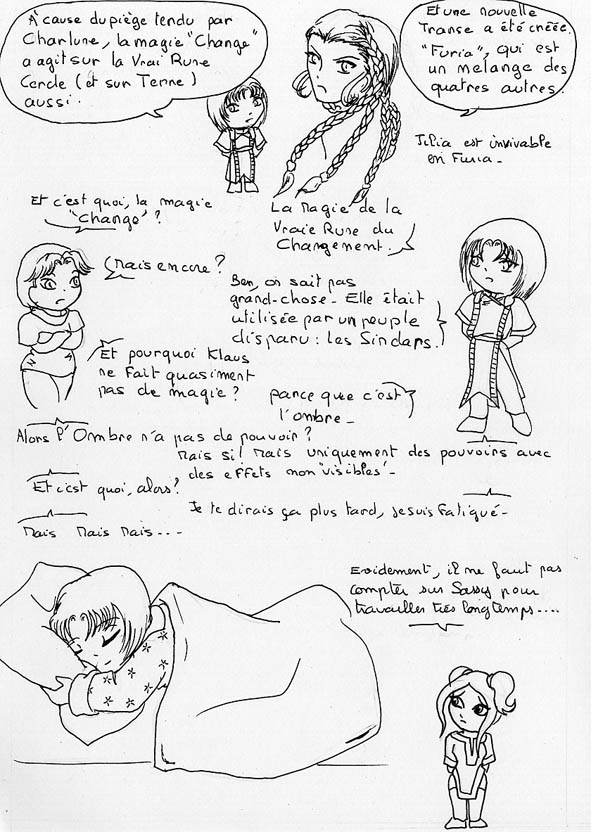 À cause du piège tendu par
Charlune, la magie "Change"
a agit sur la Vrai Rune
Cercle (et sur Terre)
aussi.
Et une nouvelle
Transe a été créée.
"Furia", qui est
un mélange des
quatres autres.
Julia est invivable
en Furia -
Et c'est quoi, la magie
"Change" ?
La Magie de la
Vraie Rune du
Changement.
Mais encore ?
Ben, on sait pas
grand-chose - Elle était
utilisée par un peuple
disparu : les Sindars.
Et pourquoi Klaus
ne fait quasiment
pas de magie ?
parce que c'est
l'ombre -
Alors l'Ombre n'a pas de pouvoir ?
Mais si ! Mais uniquement des pouvoirs avec
des effets non "visibles" -
Et c'est quoi, alors ?
Je te dirais ça plus tard, je suis fatigué -
Mais Mais Mais ...
Evidement, il ne faut pas
compter sur Sassy pour
travailler très longtemps ....